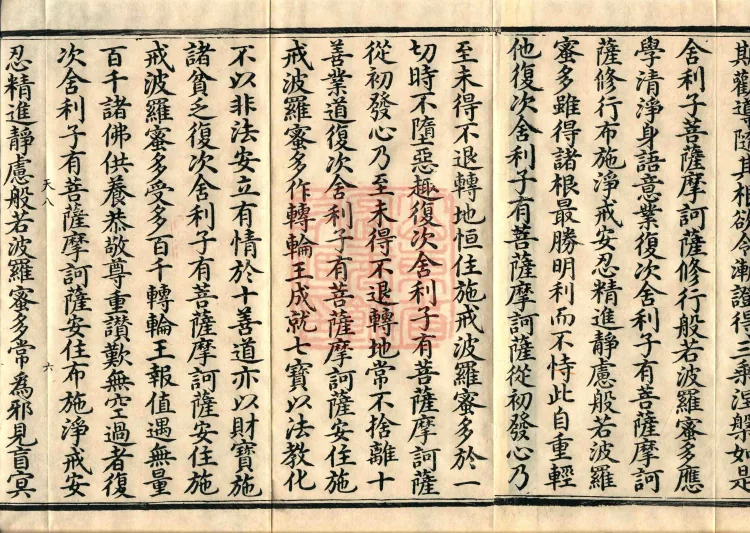 勸導隨其根欲令漸證得三乘涅槃如是
舍利子菩薩摩訶薩修行般若波羅蜜多應
學清淨身語意業復次舍利子有菩薩摩訶
薩修行布施淨戒安忍精進靜慮般若波羅
蜜多雖得諸根最勝明利而不恃此自重輕
他復次舍利子有菩薩摩訶薩從初發心乃
至未得不退轉地恒住施戒波羅蜜多於一
切時不墮惡趣復次舍利子有菩薩摩訶薩
從初發心乃至未得不退轉地常不捨離十
善業道復次舍利子有菩薩摩訶薩安住施
戒波羅蜜多作轉輪王成就七寶以法教化
不以非法安立有情於十善道亦以財寶施
諸貧乏復次舍利子有菩薩摩訶薩安住施
戒波羅蜜多受多百千轉輪王報值遇無量
百千諸佛供養恭敬尊重讚歎無空過者復
次舍利子有菩薩摩訶薩安住布施淨戒安
天八 六
忍精進靜慮般若波羅蜜多常為邪見盲冥